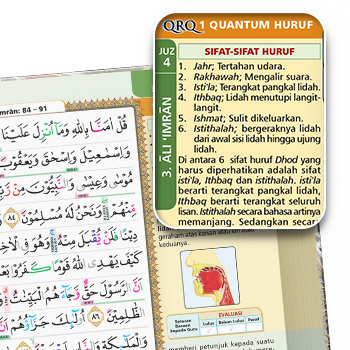 QRQ 1 QUANTUM HURUF
JUZ
4
3. ĀLI 'IMRĀN
SIFAT-SIFAT HURUF
1. Jahr; Tertahan udara.
2. Rakhawah; Mengalir suara.
3. Isti'la; Terangkat pangkal lidah.
4. Ithbaq; Lidah menutupi langit-
langit.
5. Ishmat; Sulit dikeluarkan.
6. Istithalah; bergeraknya lidah
dari awal sisi lidah hingga ujung
lidah.
Di antara 6 sifat huruf Dhod yang
harus diperhatikan adalah sifat
isti'la, Ithbaq dan istithalah. isti'la
berarti terangkat pangkal lidah,
Ithbaq berarti terangkat seluruh
lisan. Istithalah secara bahasa artinya
memanjang. Sedangkan secar
mrān: 84 – 91
قُلْ اٰمَنَّا بِاللّٰهِ وَمَآ اُنْزِلَ عَلَيْنَا
وَاِسْمٰعِيْلَ وَاِسْحٰقَ وَيَعْقُوْبَ
مُوْسٰى وَعِيْسٰى وَالنَّبِيُّوْنَ مِنْ
مِّنْهُمْ وَنَحْنُ لَهٗ مُسْلِمُوْنَ ٨٤
دِيْنًا فَلَنْ يُّقْبَلَ مِنْهُ وَهُوَ فِى
كَيْفَ يَهْدِى اللّٰهُ قَوْمًا كَفَرُوْا
اَنَّ الرَّسُوْلَ حَقٌّ وَّجَاۤءَهُمُ الْبَيِّنٰتُ
الظّٰلِمِيْنَ ٨٦ اُولٰۤىِٕكَ جَزَاۤؤُهُمْ اَنَّ
geraham atas kanan atau kiri atau
keduanya.
EVALUASI
Satuan
Bacaan
kepada Guru
Lulus
Belum Lulus
Paraf
memberi petunjuk kepada suatu